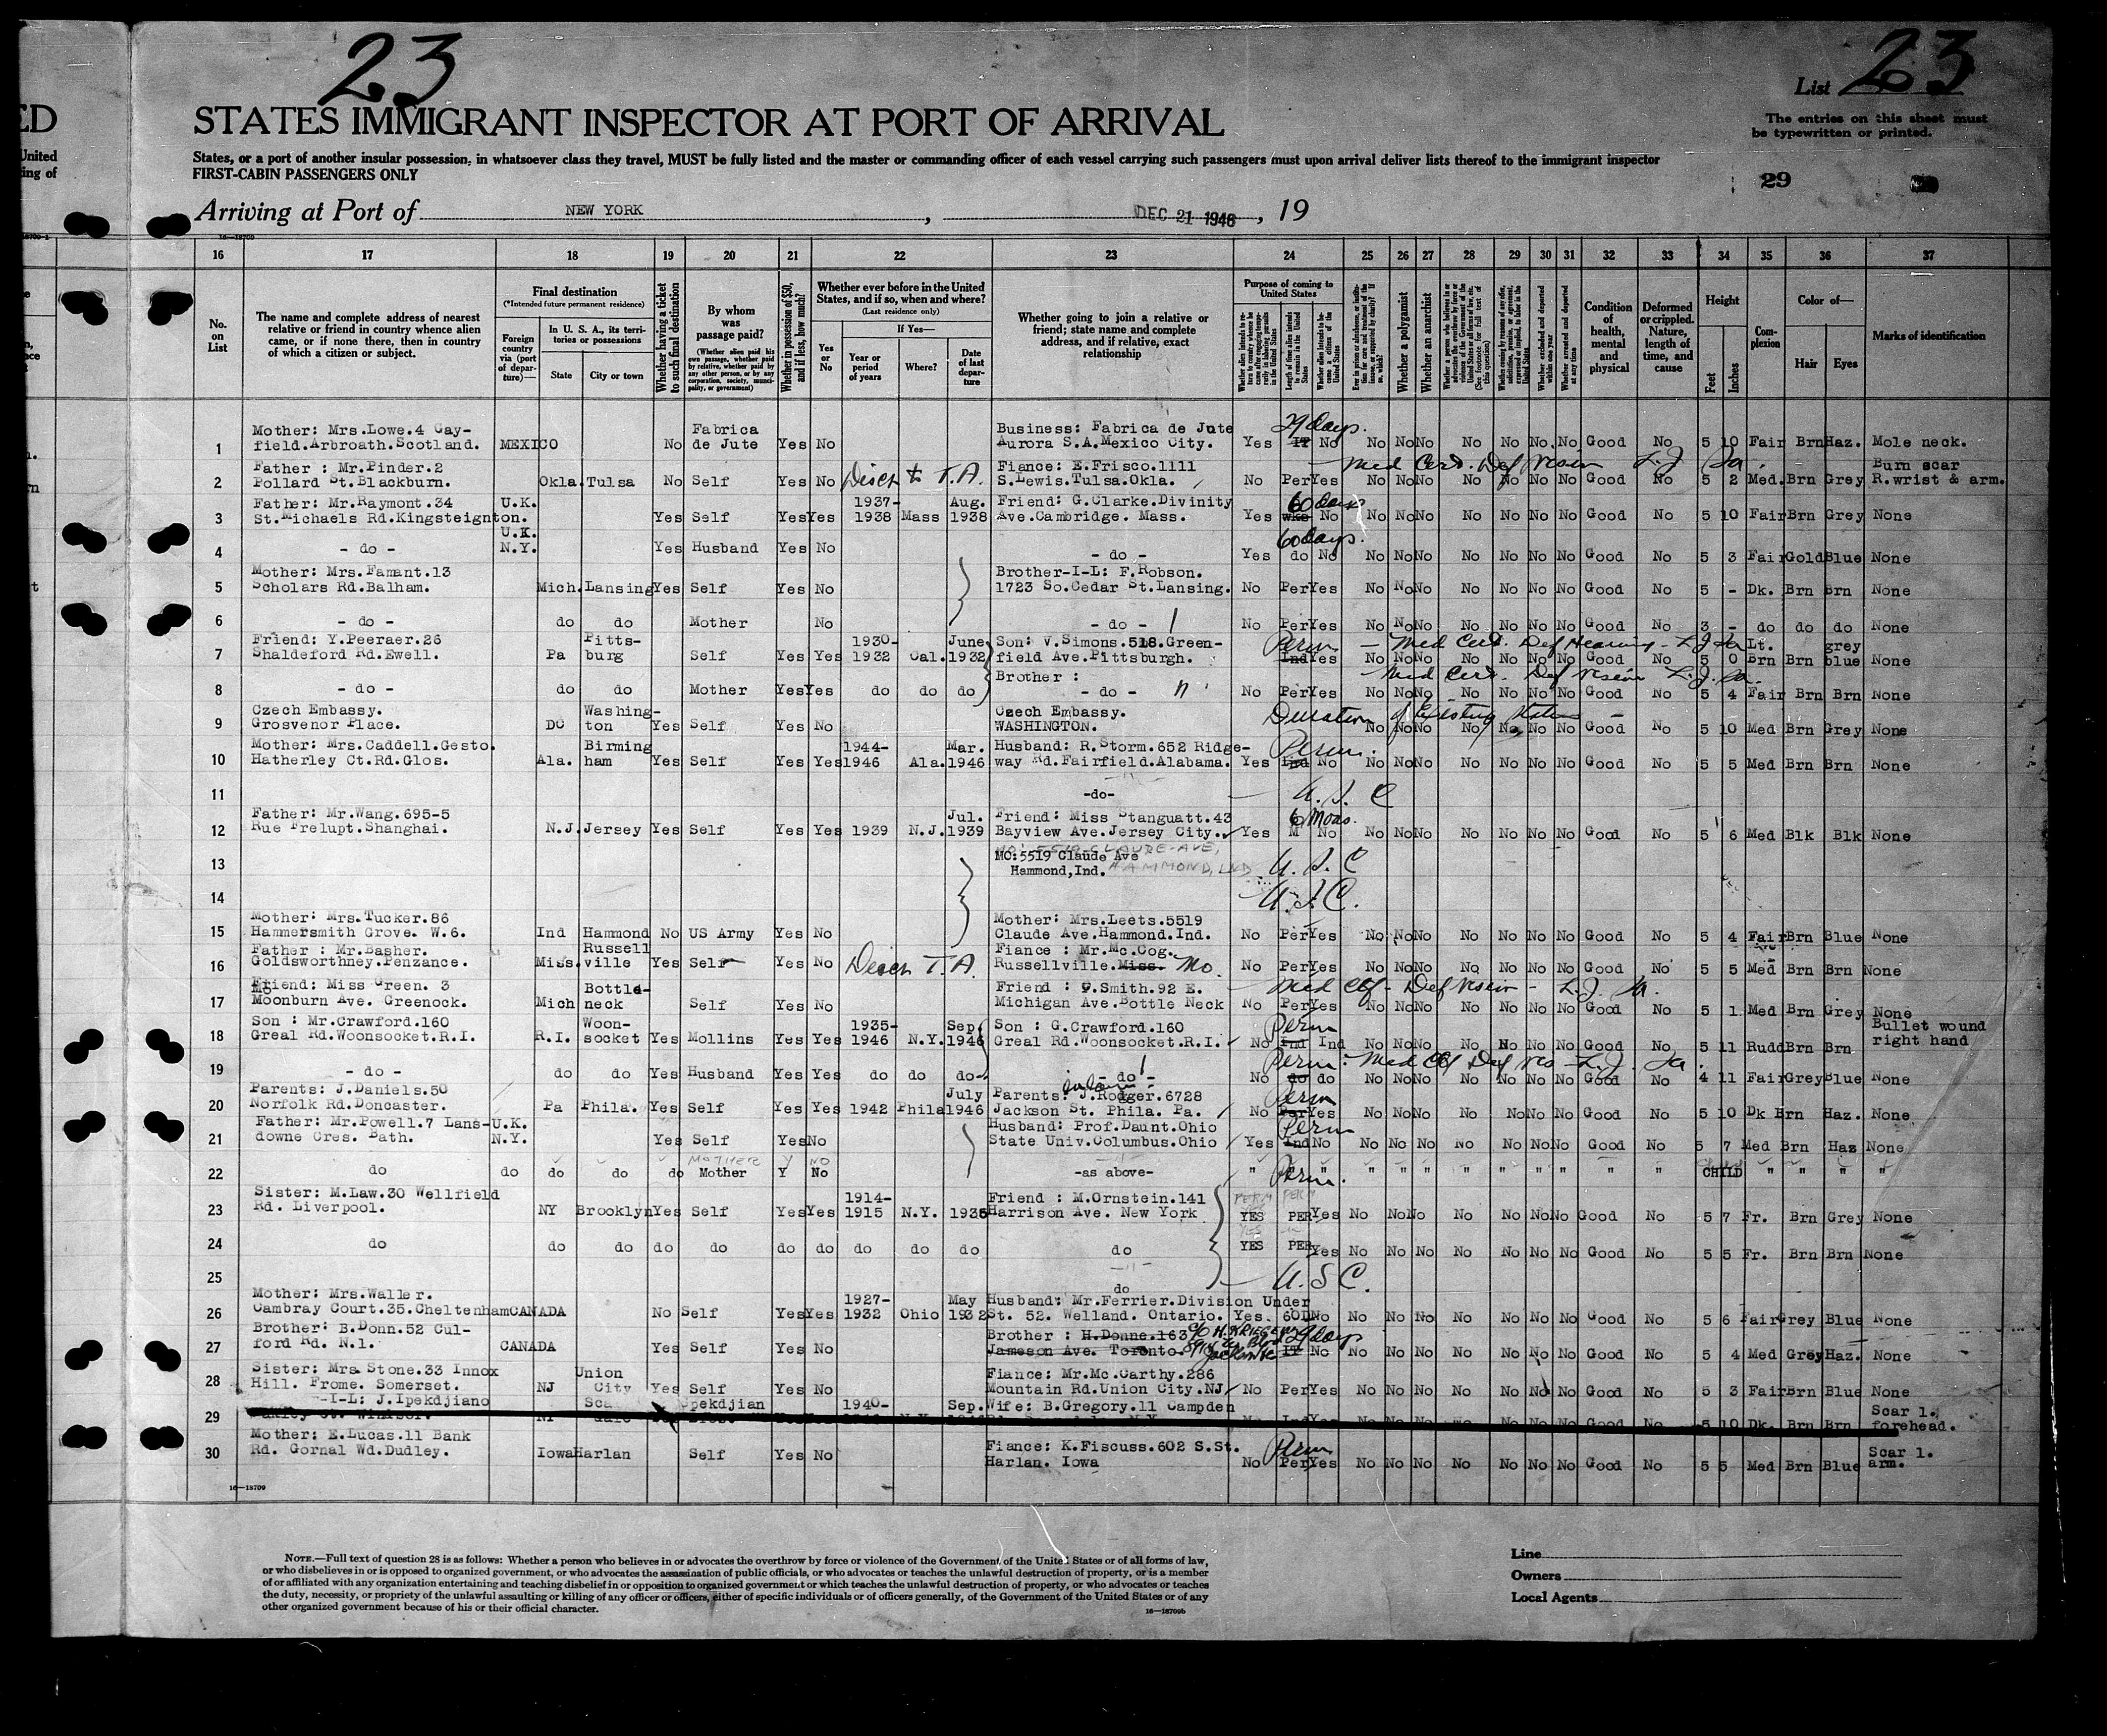 23
List 23
ED
STATES IMMIGRANT INSPECTOR AT PORT OF ARRIVAL
The entries on this sheet must
be typewritten or printed.
United
ing of
States, or a port of another insular possession, in whatsoever class they travel, MUST be fully listed and the master or commanding officer of each vessel carrying such passengers must upon arrival deliver lists thereof to the immigrant inspector
FIRST-CABIN PASSENGERS ONLY
29
Arriving at Port of NEW YORK, DEC 21 1946, 19
16 17 18 19 20 21 22 23 24 25 26 27 28 29 30 31 32 33 34 35 36 37
No. on List
The name and complete address of nearest relative or friend in country whence alien came, or if none there, then in country of which a citizen or subject.
Final destination
(*Intended future permanent residence)
Foreign country via (port of departure)—
In U. S. A., its territories or possessions
State
City or town
Whether having a ticket to such final destination
By whom was passage paid?
(Whether alien paid his own passage, whether paid by relative, whether paid by any other person, or by any corporation, society, municipality, or government)
Whether in possession of $50, and if less, how much?
Whether ever before in the United States, and if so, when and where?
(Last residence only)
Yes or No
If Yes—
Year or period of years
Where?
Date of last departure
Whether going to join a relative or friend; state name and complete address, and if relative, exact relationship
Purpose of coming to United States
Whether a polygamist
Whether an anarchist
Condition of health, mental and physical
Deformed or crippled. Nature, length of time, and cause
Height
Feet
Inches
Complexion
Color of—
Hair
Eyes
Marks of identification
29 days.
Mother: Mrs.Lowe.4 Cay- Fabrica Business: Fabrica de Jute
1 field.Arbroath.Scotland. MEXICO No de Jute Yes No Aurora S.A.Mexico City. Yes No No No No No No No No Good No 5 10 Fair Brn Haz. Mole neck.
Med Cert. Def Vision L.J.
Father : Mr.Pinder.2 Disch to T.A. Fiance: E.Frisco.1111 Burn scar
2 Pollard St.Blackburn. Okla. Tulsa No Self Yes No S.Lewis.Tulsa.Okla. No Per Yes No No No No No No No Good No 5 2 Med. Brn Grey R.wrist & arm.
Father: Mr.Raymont.34 U.K. 1937- Aug. Friend: G.Clarke.Divinity 60 days
3 St.Michaels Rd.Kingsteignton. Yes Self Yes Yes 1938 Mass 1938 Ave.Cambridge. Mass. Yes wks No No No No No No No No Good No 5 10 Fair Brn Grey None
U.K. 60 days.
4 - do - N.Y. Yes Husband Yes No - do - Yes do No No No No No No No No Good No 5 3 Fair Gold Blue None
Mother: Mrs.Famant.13 Brother-I-L: F.Robson.
5 Scholars Rd.Balham. Mich. Lansing Yes Self Yes No 1723 So.Cedar St.Lansing. No Per Yes No No No No No No No Good No 5 - Dk. Brn Brn None
6 - do - do do Mother No - do - No Per Yes No No No No No No No Good No 3 - do do do None
Friend: Y.Peeraer.26 Pitts- 1930- June Son: V.Simons.518.Green- Perm - Med Cert. Def Hearing - L.J. Lt. grey
7 Shaldeford Rd.Ewell. Pa burg Self Yes Yes 1932 Cal. 1932 field Ave.Pittsburgh. Ind Yes No No No No No No No Good No 5 0 Brn Brn blue None
Brother : Med Cert. Def Vision L.J.
8 - do - do do Mother Yes Yes do do do - do - No Per Yes No No No No No No No Good No 5 4 Fair Brn Brn None
Czech Embassy. Washing- Czech Embassy. Duration of Existing Status
9 Grosvenor Place. DC ton Yes Self Yes No WASHINGTON. No No No No No No No Good No 5 10 Med Brn Grey None
Mother: Mrs.Caddell.Gesto. Birming 1944- Mar. Husband: R.Storm.652 Ridge- Perm.
10 Hatherley Ct.Rd.Glos. Ala. ham Yes Self Yes Yes 1946 Ala. 1946 way Rd.Fairfield.Alabama. Yes Ind No No No No No No No No Good No 5 5 Med Brn Brn None
11 -do- U.S.C
Father: Mr.Wang.695-5 Jul. Friend: Miss Stanguatt.43 6 Mons.
12 Rue Frelupt.Shanghai. N.J. Jersey Yes Self Yes Yes 1939 N.J. 1939 Bayview Ave.Jersey City. Yes M No No No No No No No No Good No 5 6 Med Blk Blk None
MO: 5519-CLAUDE-AVE,
13 MO:5519 Claude Ave
Hammond,Ind. HAMMOND, IND U.S.C
14 U.S.C.
Mother: Mrs.Tucker.86 Mother: Mrs.Leets.5519
15 Hammersmith Grove. W.6. Ind Hammond No US Army Yes No Claude Ave.Hammond.Ind. No Per Yes No No No No No No No Good No 5 4 Fair Brn Blue None
Father : Mr.Basher. Russell Disch T.A. Fiance : Mr.Mc.Cog.
16 Goldsworthney.Penzance. Miss. ville Yes Self Yes No Russellville.Miss. Mo. No Per Yes No No No No No No No Good No 5 5 Med Brn Brn None
Friend: Miss Green. 3 Bottle- Friend : G.Smith.92 E. Med Ctf - Def Vision - L.J.
17 Moonburn Ave. Greenock. Mich neck Self Yes No Michigan Ave.Bottle Neck No Per Yes No No No No No No No Good No 5 1 Med Brn Grey None
Son : Mr.Crawford.160 Woon- 1935- Sep. Son : G.Crawford.160 Perm Bullet wound
18 Greal Rd.Woonsocket.R.I. R.I. socket Yes Mollins Yes Yes 1946 N.Y. 1946 Greal Rd.Woonsocket.R.I. No Ind Ind No No No No No No No Good No 5 11 Rudd Brn Brn right hand
Perm. Med Ctf Def Vis - L.J.
19 - do - do do Yes Husband Yes Yes do do do - do - No do do No No No No No No No Good No 4 11 Fair Grey Blue None
Parents: J.Daniels.50 July Parents: J.Rodger.6728 in law Perm
20 Norfolk Rd.Doncaster. Pa Phila. Yes Self Yes Yes 1942 Phila 1946 Jackson St. Phila. Pa. No Per Yes No No No No No No No Good No 5 10 Dk Brn Haz. None
Father: Mr.Powell.7 Lans- U.K. Husband: Prof.Daunt.Ohio Perm
21 downe Cres. Bath. N.Y. Yes Self Yes No State Univ.Columbus.Ohio Yes Ind No No No No No No No No Good No 5 7 Med Brn Haz None
MOTHER Y NO
22 do do do do do Mother Y No -as above- " Perm. " " " " " " " " " " CHILD " " " "
Sister: M.Law.30 Wellfield 1914- Friend : M.Ornstein.141 PERM PERM
23 Rd. Liverpool. NY Brooklyn Yes Self Yes Yes 1915 N.Y. 1935 Harrison Ave. New York YES PER Yes No No No No No No No Good No 5 7 Fr. Brn Grey None
24 do do do do do do do do do do do YES PER Yes No No No No No No No Good No 5 5 Fr. Brn Brn None
25 do U.S.C.
Mother: Mrs.Waller. 1927- May Husband: Mr.Ferrier.Division Under
26 Cambray Court.35.Cheltenham CANADA No Self Yes Yes 1932 Ohio 1932 St. 52. Welland. Ontario. Yes. 60D No No No No No No No No Good No 5 6 Fair Grey Blue None
Brother: B.Donn.52 Cul- Brother : H.Donne.163 c/o H. KRIEGER 29 days
27 ford Rd. N.1. CANADA Yes Self Yes No Jameson Ave. Toronto No No No No No No No No Good No 5 4 Med Grey Haz. None
Sister: Mrs Stone.33 Innox Union Fiance: Mr.Mc.Carthy.286
28 Hill. Frome. Somerset. NJ City Yes Self Yes No Mountain Rd.Union City.NJ No Per Yes No No No No No No No Good No 5 3 Fair Brn Blue None
-I-L: J.Ipekdjiano Sca Ipekdjian 1940- Sep. Wife: B.Gregory.11 Campden Scar l.
29 Good No 5 10 Dk. Brn Brn forehead.
Mother: E.Lucas.11 Bank Fiance: K.Fiscuss.602 S.St. Perm Scar l.
30 Rd. Gornal Wd.Dudley. Iowa Harlan Self Yes No Harlan. Iowa No Per Yes No No No No No No No Good No 5 5 Med Brn Blue arm.
16—18709
NOTE.—Full text of question 28 is as follows: Whether a person who believes in or advocates the overthrow by force or violence of the Government of the United States or of all forms of law,
or who disbelieves in or is opposed to organized government, or who advocates the assassination of public officials, or who advocates or teaches the unlawful destruction of property, or is a member
of or affiliated with any organization entertaining and teaching disbelief in or opposition to organized government or which teaches the unlawful destruction of property, or who advocates or teaches
the duty, necessity, or propriety of the unlawful assaulting or killing of any officer or officers, either of specific individuals or of officers generally, of the Government of the United States or of any
other organized government because of his or their official character.
16—18709b
Line
Owners
Local Agents